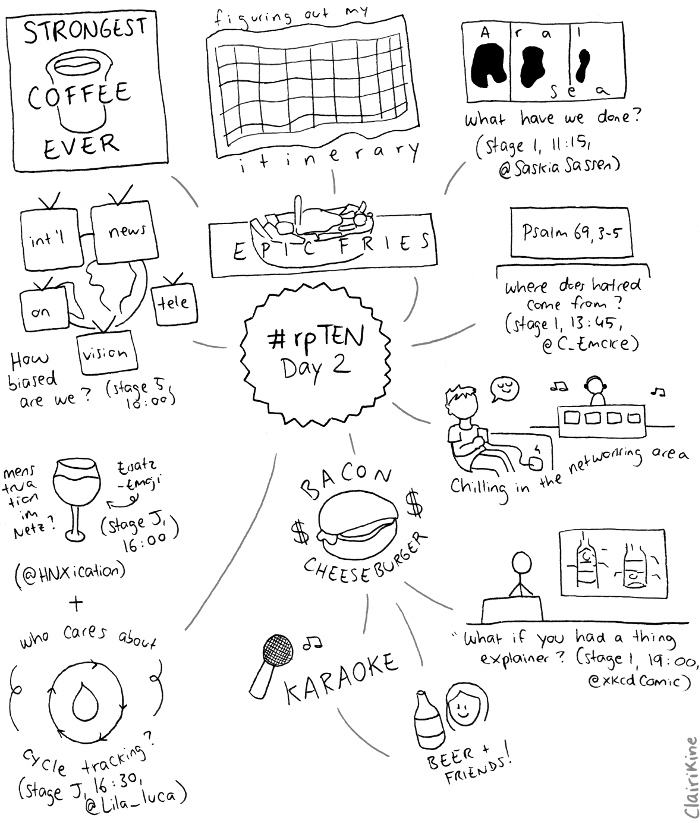 STRONGEST
COFFEE
EVER
figuring out my
itinerary
Aral
Sea
what have we done?
(stage 1, 11:15,
@SaskiaSassen)
EPIC FRIES
int'l
news
on
tele
vision
How
biased
are we? (stage 5,
10:00)
Psalm 69,3-5
where does hatred
come from?
(stage 1, 13:45,
@C_Emcke)
#rpTEN
Day 2
Chilling in the networking area
mens
trua
tion
im
Netz?
Ersatz
-Emoji
(stage J,
16:00)
(@HNXication)
+
who cares about
cycle tracking?
(stage J, 16:30,
@Lila_luca)
BACON
$
$
CHEESEBURGER
KARAOKE
BEER +
FRIENDS!
"What if you had a thing
explainer? (stage 1, 19:00,
@xkcdComic)
ClairiKine